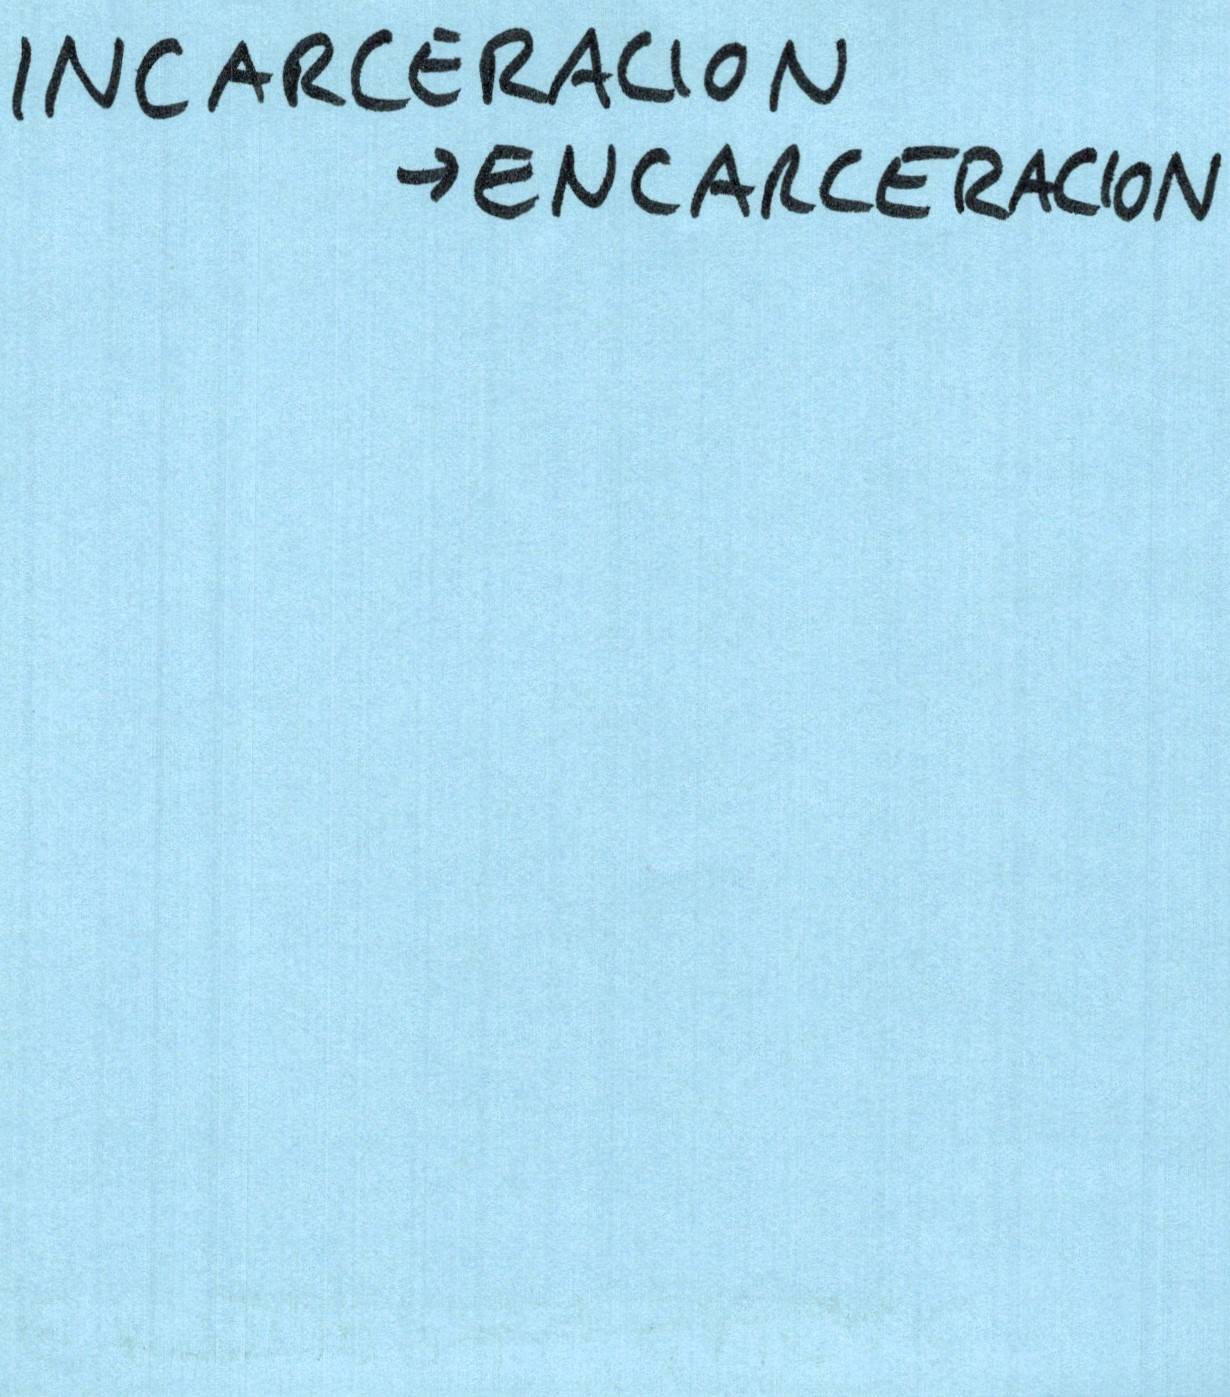 INCARCERACION
→ENCARCERACION